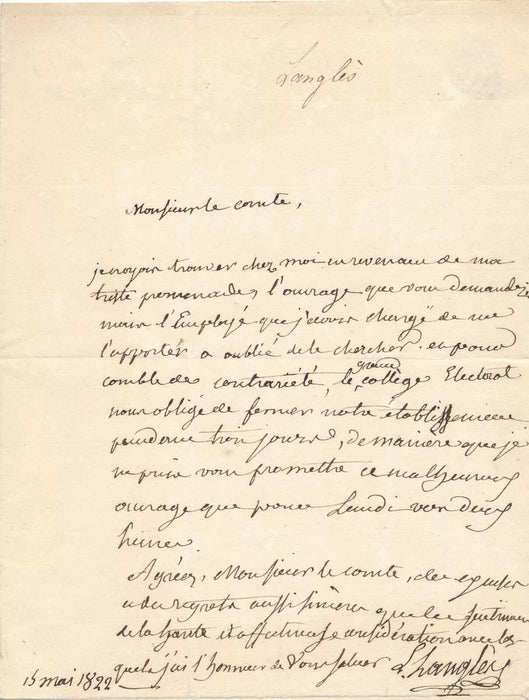 Langlès
Monsieur le comte,
je croyois trouver chez moi en revenant de ma
triste promenade, l'ouvrage que vous demandez
mais l'Employé que j'avois chargé de me
l'apporter a oublié de le chercher. et pour
comble de contrariété, le grand collège Electoral
nous oblige de fermer notre établissement
pendant trois jours, de maniere que je
ne puis vous promettre ce malheureux
ouvrage que pour Lundi vers deux
heures.
Agréez, Monsieur le comte, des excuses
et des regrets aussi sincères que les sentimens
de la haute et affectueuse considération avec les
quels j'ai l'honneur de vous saluer L. Langlès
15 mai 1822